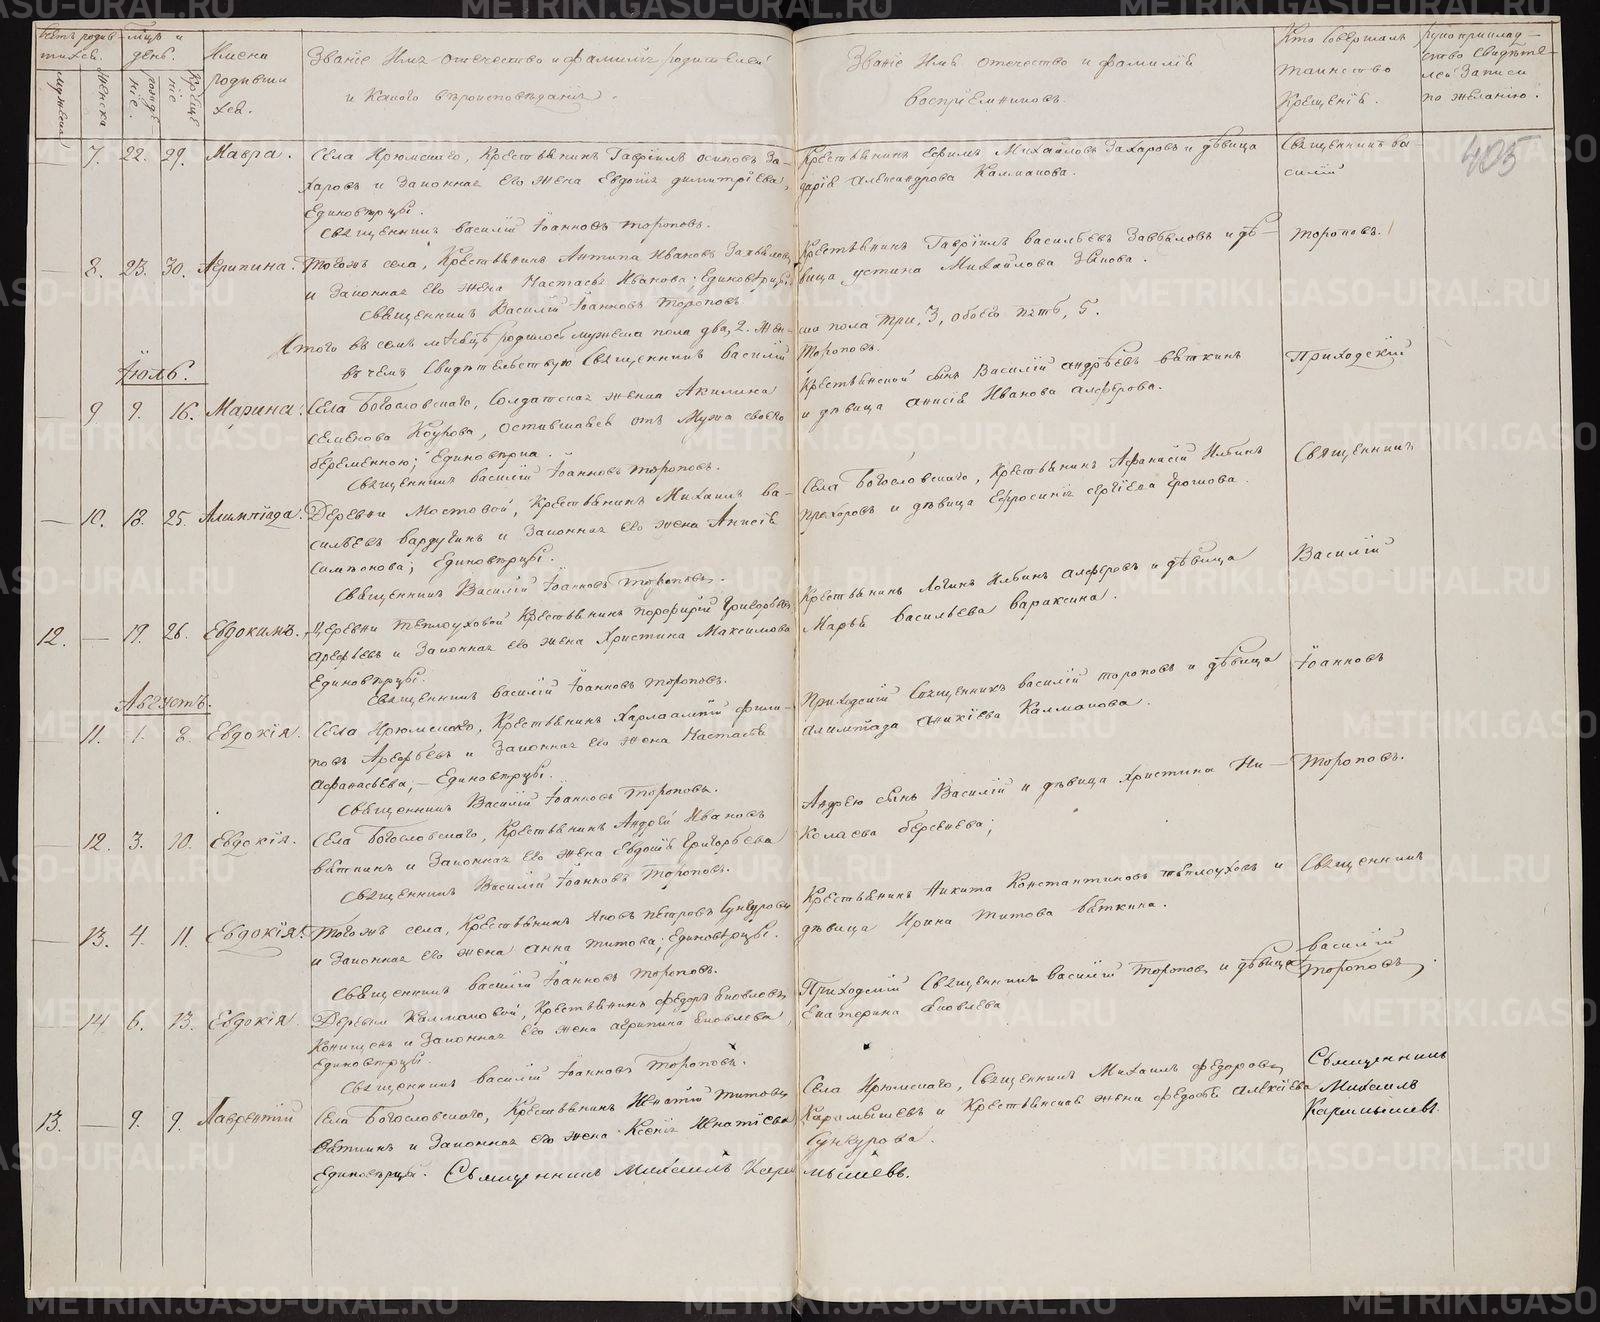 Мѣсяцъ и день.
Имена родившихся.
Званіе Имя отечество и фамилія родителей
и какого вѣроисповѣданія.
Званіе Имя отечество и фамилія
воспріемниковъ.
Кто совершалъ
таинство
Крещенія.
по желанію.
405
7. 22. 29. Мавра.
Села Ирюмскаго, Крестьянинъ Гавріилъ осиповъ За-
харовъ и Законная его жена Евдокія димитріева,
Единовѣрцы.
Священникъ василій Іоанновъ топоровъ.
Крестьянинъ Ефимъ Михайловъ Захаровъ и дѣвица
дарія Александрова Калмакова.
Священникъ ва-
силій
8. 23. 30. Агрипина.
Тогожъ села, Крестьянинъ Антипа Ивановъ
и Законная его жена Настасья Иванова; Единовѣрцы
Священникъ Василій Іоанновъ Тороповъ
Крестьянинъ Гавріилъ васильевъ Завьяловъ и дѣ-
вица устина Михайлова
Тороповъ.
Итого въ семъ мѣсяцѣ родилось мужеска пола два, 2. жен-
ска пола три, 3, обоего пять, 5.
въ чемъ Свидѣтельствую Священникъ Василій
Тороповъ.
Іюль.
9 9. 16. Марина.
Села Богословскаго, Солдатская жена Акилина
семенова Коурова, оставшаяся отъ Мужа своего
беременною; Единовѣрка.
Священникъ василій Іоанновъ тороповъ.
Крестьянской сынъ Василій андрѣевъ вяткинъ
и дѣвица анисія Иванова алферова.
Приходскій
10. 18. 25. Алимпіада.
Деревни Мостовой, Крестьянинъ Михаилъ ва-
сильевъ вардугинъ и Законная его жена Анисія
Единовѣрцы.
Священникъ Василій Іоанновъ Тороповъ.
Села Богословскаго, Крестьянинъ Афанасій Ильинъ
Прохоровъ и дѣвица Ефросинія сергіева Ершова.
Священникъ
12. 19. 26. Евдокимъ.
Деревни тѣплоуховой Крестьянинъ порфирій
Арефьевъ и Законная его жена Христина Максимова
Единовѣрцы.
Священникъ василій Іоанновъ тороповъ.
Крестьянинъ Логинъ Ильинъ алферовъ и дѣвица
Марья Васильева вараксина.
Василій
Августъ.
11. 1. 8. Евдокія.
Села Ирюмскаго, Крестьянинъ Харлампій фили-
повъ Арефьевъ и Законная его жена Настасья
афанасьева; — Единовѣрцы.
Священникъ Василій Іоанновъ Тороповъ.
Приходскій Священникъ василій тороповъ и дѣвица
алимпіада аникіева Калмакова.
Іоанновъ
12. 3. 10. Евдокія.
Села Богословскаго, Крестьянинъ Андрей Ивановъ
вяткинъ и Законная его жена Евдокія Григорьева
Священникъ Василій Іоанновъ Тороповъ.
Андрею сынъ Василій и дѣвица Христина Ни-
колаева берсенева;
Тороповъ.
13. 4. 11. Евдокія.
Тогожъ села, Крестьянинъ Яковъ петровъ Сункуровъ
и Законная его жена анна титова; Единовѣрцы.
Священникъ василій Іоанновъ тороповъ.
Крестьянинъ Никита Константиновъ тѣплоуховъ и
дѣвица Ирина Титова вяткина.
Священникъ
14 6. 13. Евдокія.
Деревни Калмаковой, Крестьянинъ федоръ яковлевъ
Конищевъ и Законная его жена агрипина яковлева,
Единовѣрцы.
Священникъ василій Іоанновъ Тороповъ.
Приходскій Священникъ василій Тороповъ и дѣвица
Екатерина яковлева
василій
Тороповъ.
13. 9. 9. Лаврентій
Села Богословскаго, Крестьянинъ Игнатій титовъ
вяткинъ и Законная его жена Ксенія Игнатіева
Единовѣрцы. Священникъ Михаилъ Карамышевъ.
Села Ирюмскаго, Священникъ Михаилъ федоровъ
Карамышевъ и Крестьянская жена федосья алексіева
Сункурова.
Священникъ
Михаилъ
Карамышевъ.
METRIKI.GASO-URAL.RU